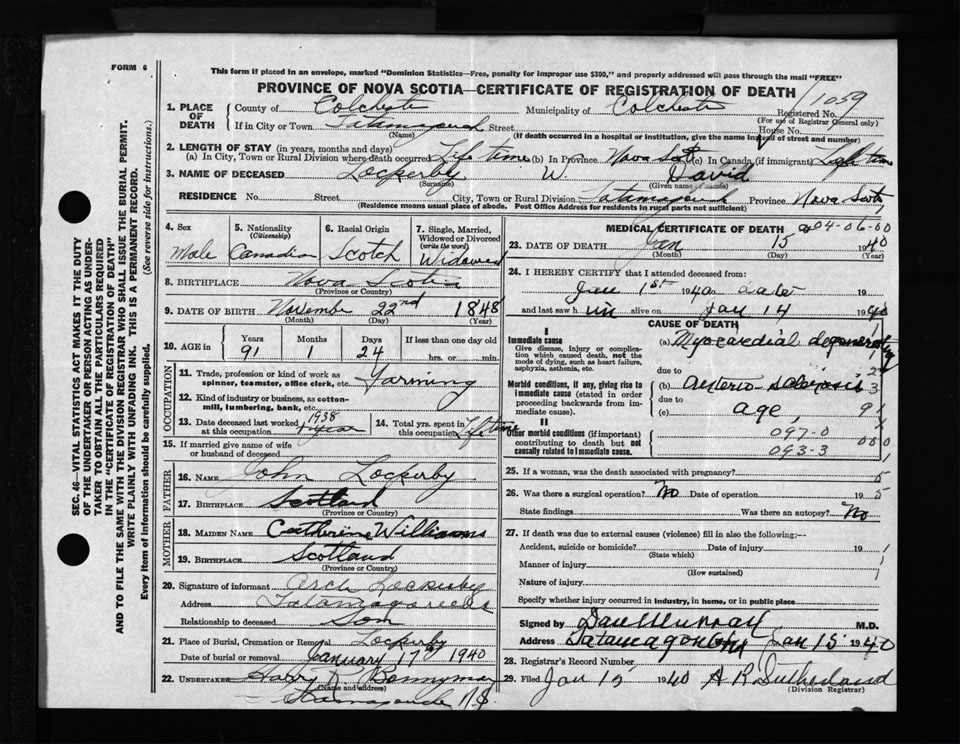 FORM 6
This form if placed in an envelope, marked "Dominion Statistics—Free, penalty for improper use $300," and properly addressed will pass through the mail "FREE"
PROVINCE OF NOVA SCOTIA—CERTIFICATE OF REGISTRATION OF DEATH
1. PLACE OF DEATH County of Colchester Municipality of Colchester Registered No. 1059
(For use of Registrar General only)
If in City or Town Street House No.
(Name) (If death occurred in a hospital or institution, give the name instead of street and number)
2. LENGTH OF STAY (in years, months and days)
(a) In City, Town or Rural Division where death occurred Life time (b) In Province Nova Scot (c) In Canada (if immigrant) time
3. NAME OF DECEASED Lockerby W. David
(Surname) (Given name or names)
RESIDENCE No. Street City, Town or Rural Division Province Nova Scot
(Residence means usual place of abode. Post Office Address for residents in rural parts not sufficient)
4. Sex
Male
5. Nationality
(Citizenship)
Canadian
6. Racial Origin
Scotch
7. Single, Married, Widowed or Divorced
(write the word)
Widowed
8. BIRTHPLACE Nova Scotia
(Province or Country)
9. DATE OF BIRTH November 22nd 1848
(Month) (Day) (Year)
10. AGE in Years Months Days If less than one day
91 1 24 hrs. or min.
OCCUPATION
11. Trade, profession or kind of work as spinner, teamster, office clerk, etc. Farming
12. Kind of industry or business, as cotton-mill, lumbering, bank, etc.
13. Date deceased last worked at this occupation 1938
14. Total yrs. spent in this occupation Life time
15. If married give name of wife or husband of deceased
FATHER
16. NAME John Lockerby
17. BIRTHPLACE Scotland
(Province or Country)
MOTHER
18. MAIDEN NAME Catherine Williams
19. BIRTHPLACE Scotland
(Province or Country)
20. Signature of informant Arch Lockerby
Address
Relationship to deceased Son
21. Place of Burial, Cremation or Removal Lockerby
Date of burial or removal January 17th 1940
22. UNDERTAKER Harry Bonnyman
(Name and address)
N.S.
MEDICAL CERTIFICATE OF DEATH 04-06-00
23. DATE OF DEATH Jan 15 1940
(Month) (Day) (Year)
24. I HEREBY CERTIFY that I attended deceased from:
1st 1940 to date
and last saw him alive on Jan 14 1940
CAUSE OF DEATH
I
Immediate cause
Give disease, injury or complication which caused death, not the mode of dying, such as heart failure, asphyxia, asthenia, etc.
(a) Myocardial degeneration
due to
Morbid conditions, if any, giving rise to immediate cause (stated in order proceeding backwards from immediate cause).
(b) Arterio
due to
(c) age 91
II
Other morbid conditions (if important) contributing to death but not causally related to immediate cause.
097-0
093-3
25. If a woman, was the death associated with pregnancy?
26. Was there a surgical operation? No Date of operation 19
State findings Was there an autopsy? No
27. If death was due to external causes (violence) fill in also the following:—
Accident, suicide or homicide? Date of injury 19
(State which)
Manner of injury
(How sustained)
Nature of injury
Specify whether injury occurred in industry, in home, or in public place
Signed by Dan Murray M.D.
Address Jan 15 1940
28. Registrar's Record Number
29. Filed Jan 1940 A R Sutherland
(Division Registrar)
SEC. 46—VITAL STATISTICS ACT MAKES IT THE DUTY
OF THE UNDERTAKER OR PERSON ACTING AS UNDER-
TAKER TO OBTAIN ALL THE PARTICULARS REQUIRED
IN THE "CERTIFICATE OF REGISTRATION OF DEATH"
AND TO FILE THE SAME WITH THE DIVISION REGISTRAR WHO SHALL ISSUE THE BURIAL PERMIT.
WRITE PLAINLY WITH UNFADING INK. THIS IS A PERMANENT RECORD.
Every item of information should be carefully supplied. (See reverse side for instructions.)